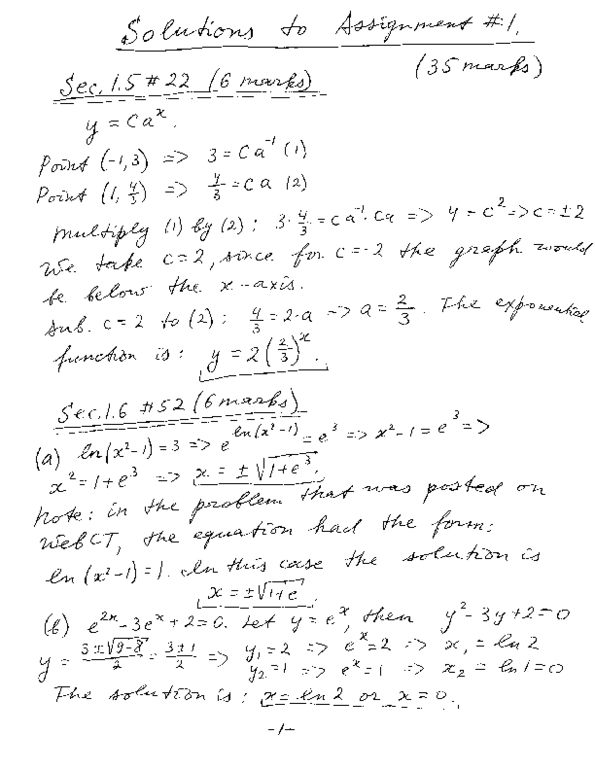 Solutions to Assignment #1.
(35 marks)
Sec. 1.5 #22 (6 marks)
y = Ca^x.
Point (-1,3) => 3 = Ca^-1 (1)
Point (1, 4/3) => 4/3 = Ca (2)
Multiply (1) by (2): 3·4/3 = Ca^-1·Ca => 4 = C^2 => C = ±2
We take C=2, since for C=-2 the graph would
be below the x-axis.
Sub. C=2 to (2): 4/3 = 2·a => a = 2/3. The exponential
function is: y = 2(2/3)^x.
Sec. 1.6 #52 (6 marks)
(a) ln(x²-1)=3 => e^ln(x²-1) = e^3 => x²-1 = e^3 =>
x² = 1+e^3 => x = ±√1+e^3.
Note: in the problem that was posted on
WebCT, the equation had the form:
ln(x²-1)=1. In this case the solution is
x = ±√1+e.
(b) e^2x - 3e^x + 2 = 0. Let y = e^x, then y²-3y+2=0
y = 3±√9-8/2 = 3±1/2 => y₁=2 => e^x=2 => x₁ = ln 2
y₂=1 => e^x=1 => x₂ = ln 1=0
The solution is: x = ln 2 or x = 0.
-1-